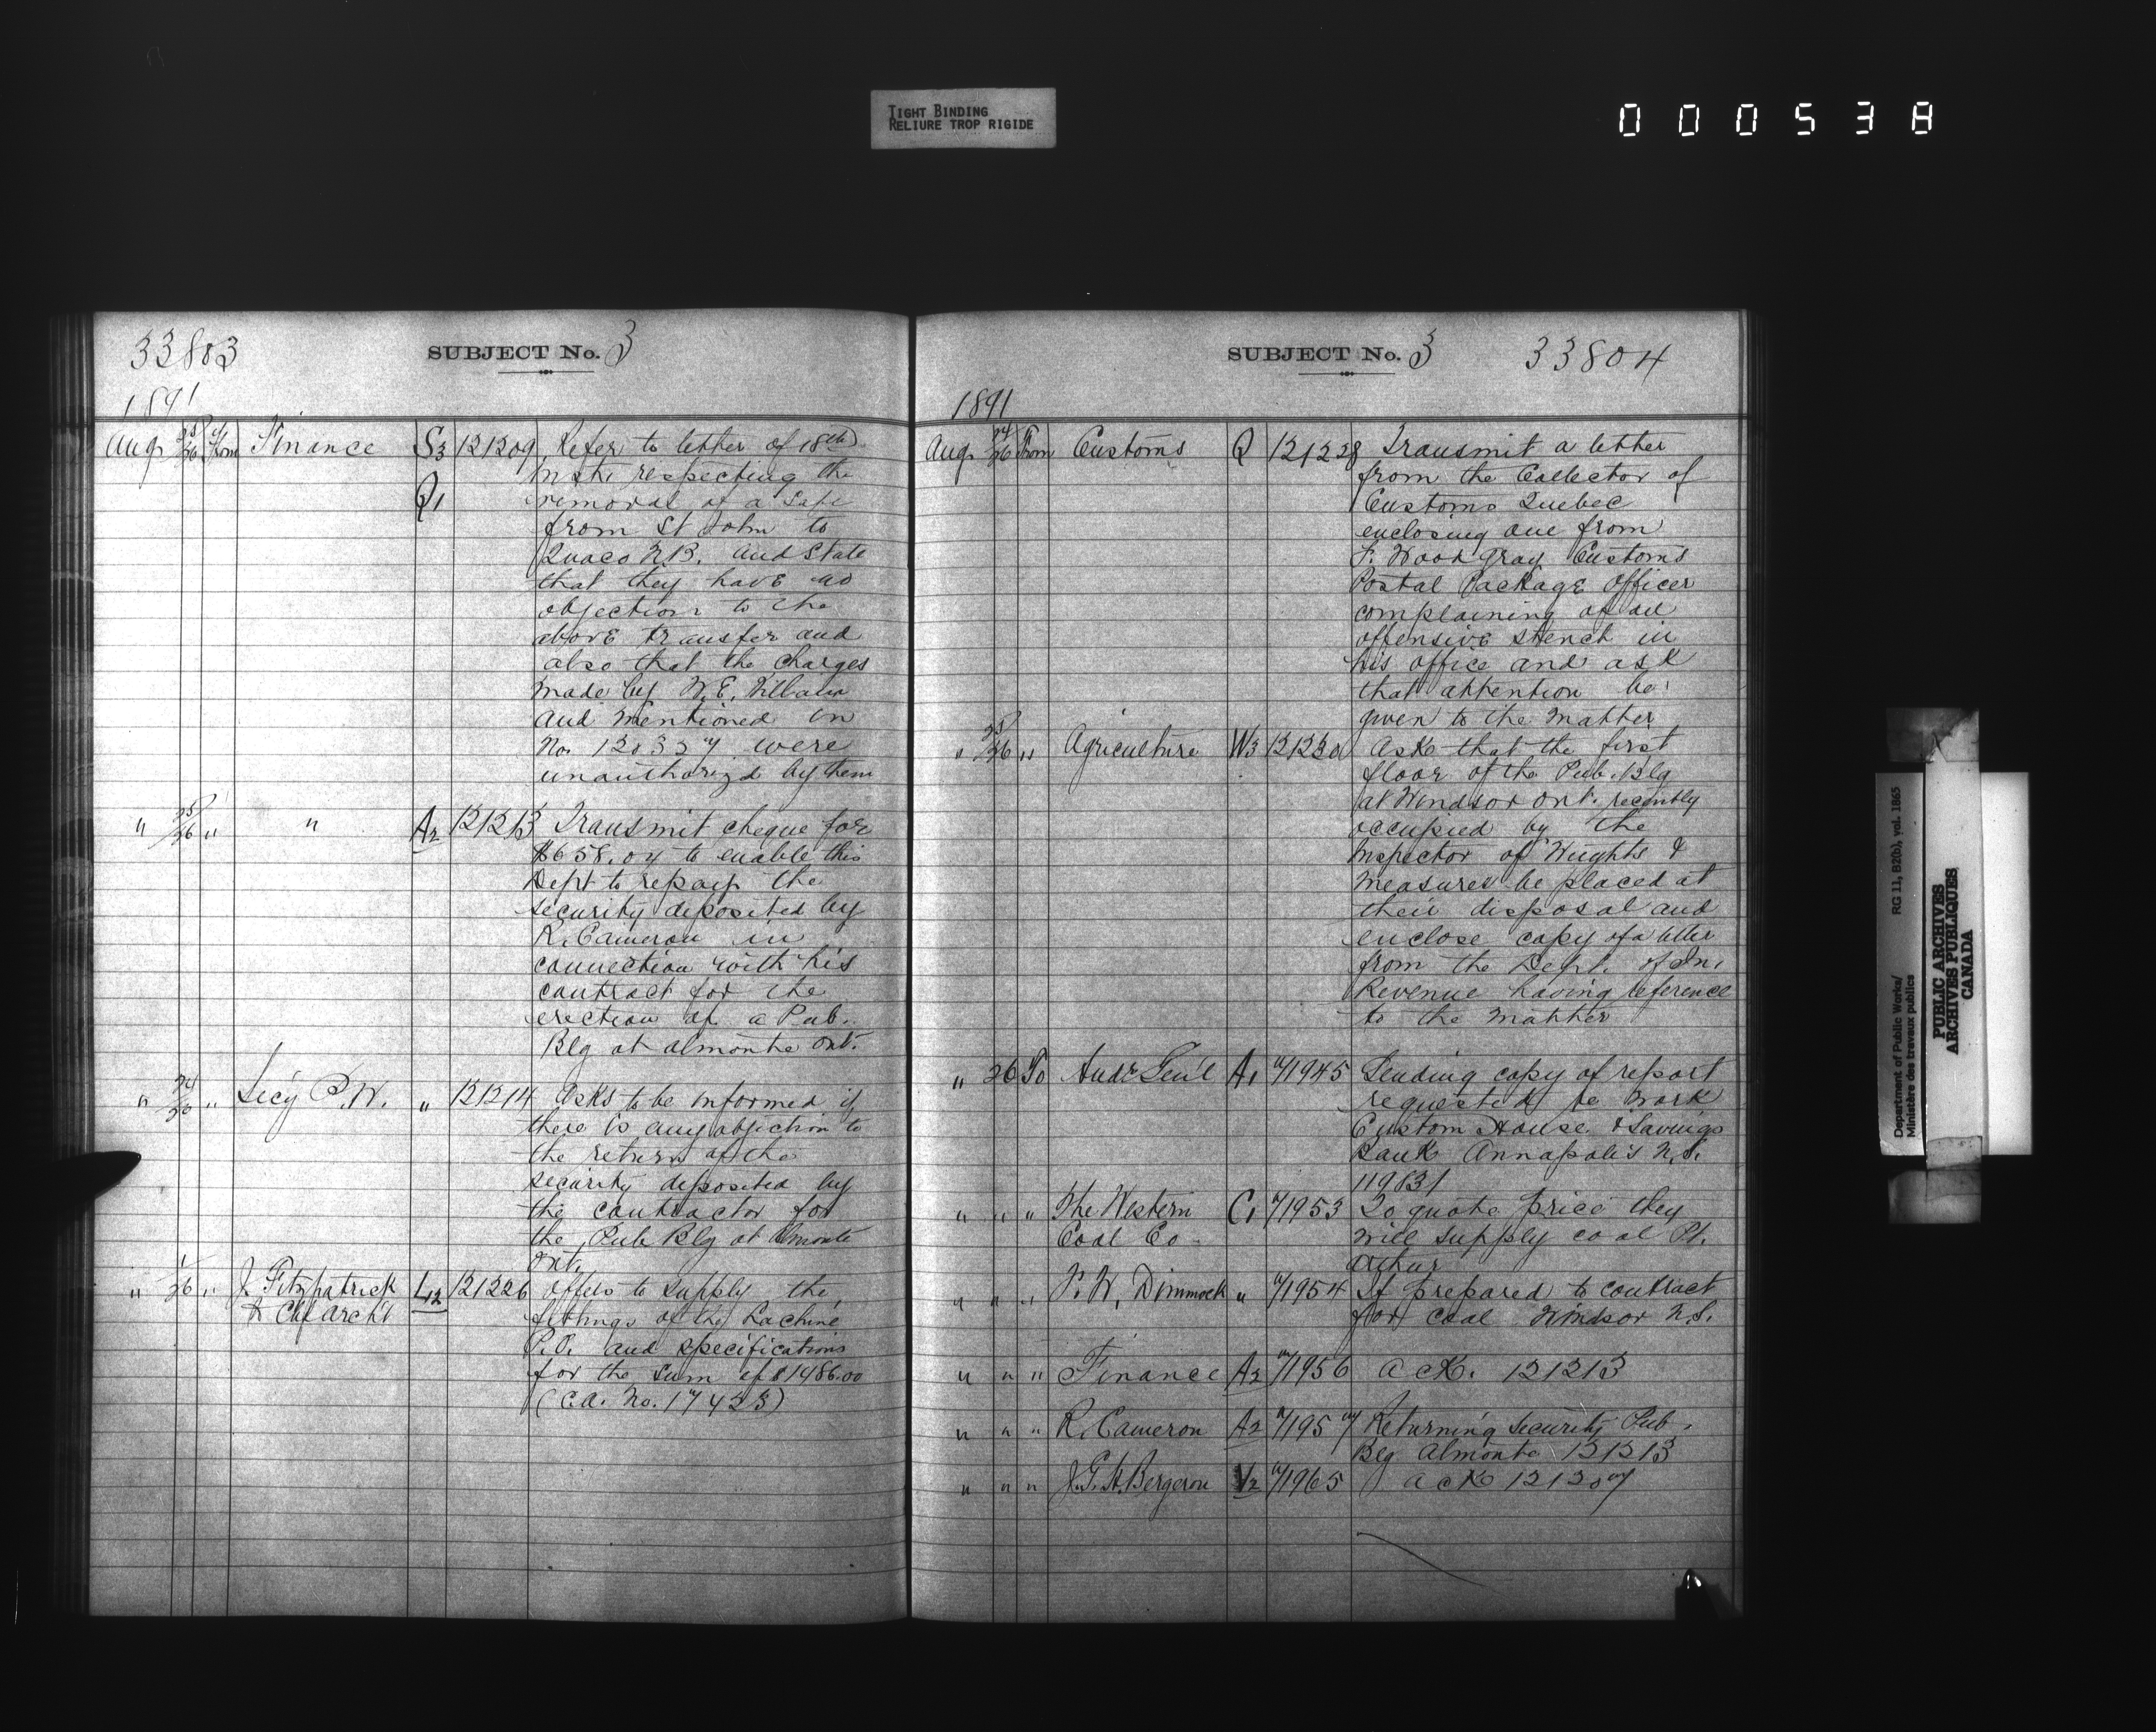 TIGHT BINDING
RELIURE TROP RIGIDE
000538
33803
SUBJECT No. 3
1891
Aug 25/26 From Finance S3 121209 Refer to letter of 18th
Inst. respecting the
Q1 removal of a Safe
from St John to
Quaco N.B. and State
that they have no
objection to the
above transfer and
also that the charges
made by W.E.
and mentioned in
No. 120357 were
unauthorizd by them
" 25/26 " " A2 121213 Transmit cheque for
$658.04 to enable this
Dept to repay the
security deposited by
R. Cameron in
connection with his
contract for the
erection of a Pub.
Blg at Almonte Ont.
" 24/26 " Secy P.W. " 121214 Asks to be informed if
there is any objection to
the return of the
security deposited by
the contractor for
the Pub Blg at Almonte
Ont.
" 1/26 " J. Fitzpatrick L2 121226 Offers to supply the
& Chf Archt fittings of the Lachine
P.O. and specifications
for the sum of $1486.00
(C.A. No. 17423)
SUBJECT No. 3
33804
1891
Aug 24/26 From Customs Q 121228 Transmit a letter
from the Collector of
Customs Quebec
enclosing one from
F. Wood Gray Customs
Postal Package Officer
complaining of an
offensive stench in
his office and ask
that attention be
given to the matter
" 25/26 " Agriculture W3 121230 Ask that the first
floor of the Pub. Blg
at Windsor Ont. recently
occupied by the
Inspector of Weights &
Measures be placed at
their disposal and
enclose copy of a letter
from the Dept. of In.
Revenue having reference
to the matter
" 26 To Audr Genl A1 71945 Sending copy of report
requested re work
Custom House & Savings
Bank Annapolis N.S.
119831
" " " The Western C1 71953 To quote price they
Coal Co. will supply coal Pt.
Arthur
" " " P. W. Dimmock " 71954 If prepared to contract
for coal Windsor N.S.
" " " Finance A2 71956 Ack. 121213
" " " R. Cameron A2 71957 Returning security Pub.
Blg Almonte 121213
" " " J.G.H. Bergeron V2 71965 Ack 121207
Department of Public Works/
Ministère des travaux publics
RG 11, B2(b), vol. 1865
PUBLIC ARCHIVES
ARCHIVES PUBLIQUES
CANADA